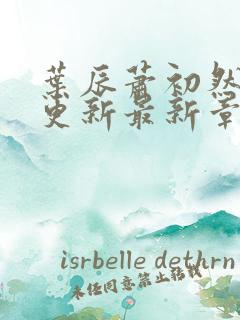 葉辰蕭初然
更新最新章
isrbelle dethrn
未经同意禁止转载